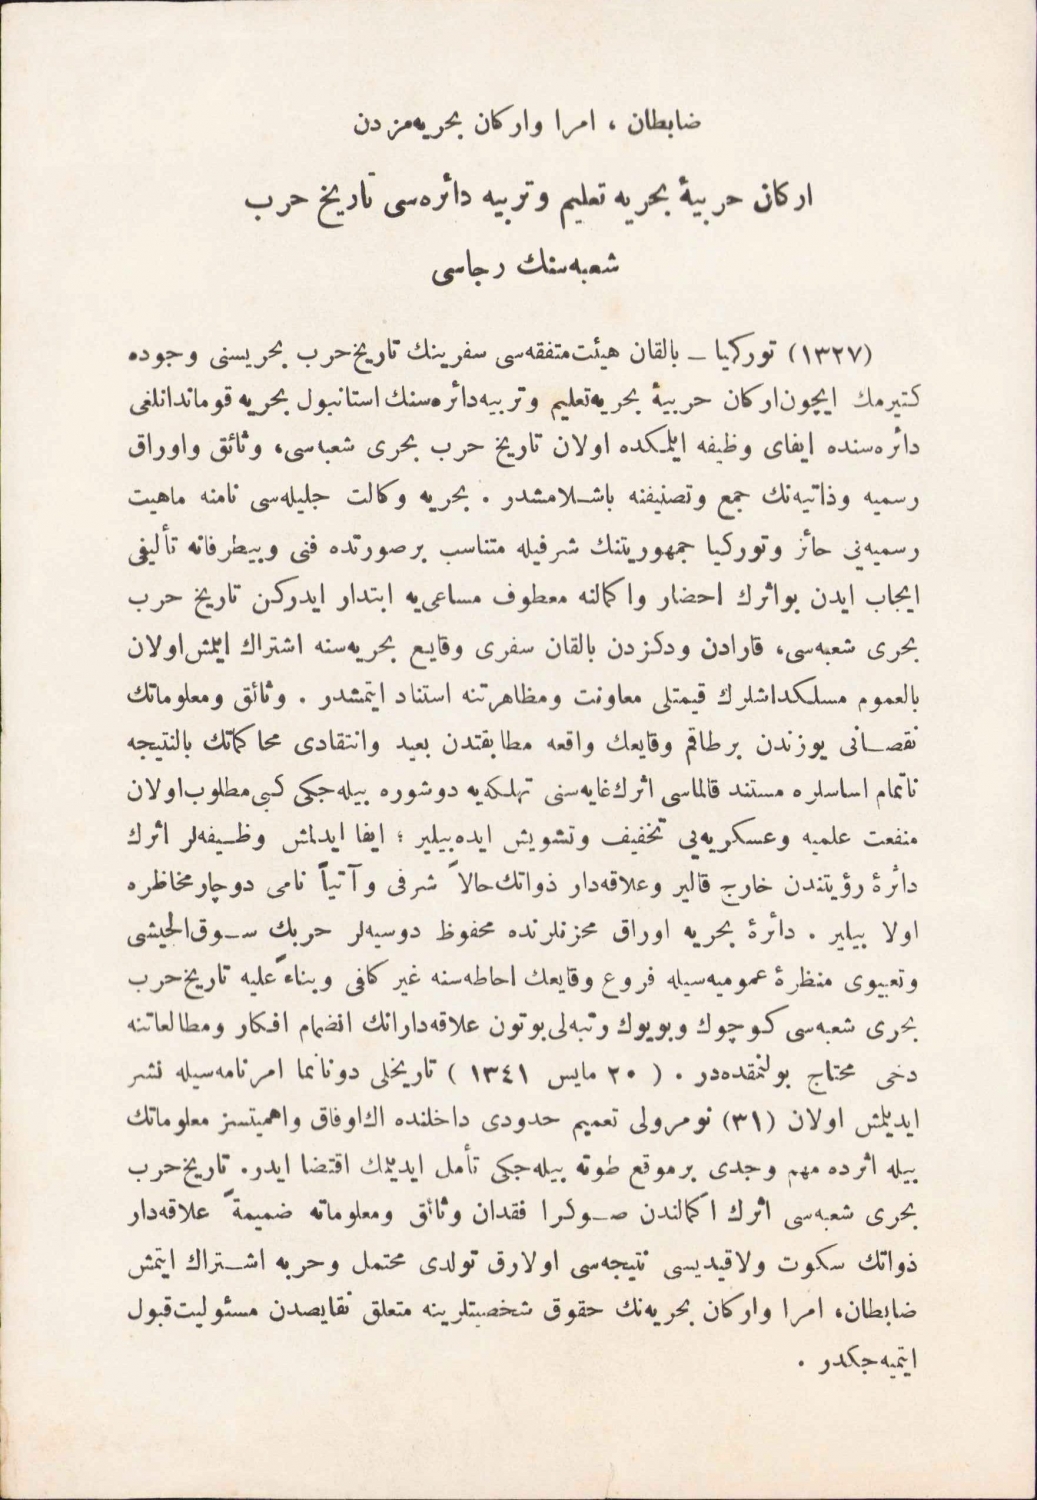 ضابطان ، امرا واركان بحريه‌مزدن
اركان حربيۀ بحريه تعليم وتربيه دائره‌سى تاريخ حرب
شعبه‌سنك رجاسى
(١٣٢٧) توركيا ــ بالقان هيئت متفقه‌سى سفرينك تاريخ حرب بحريسنى وجوده
كتيرمك ايچون اركان حربيۀ بحريه تعليم وتربيه دائره‌سنك استانبول بحريه قوماندانلغى
دائره‌سنده ايفاى وظيفه ايلمكده اولان تاريخ حرب بحرى شعبه‌سى، وثائق واوراق
رسميه وذاتيه‌نك جمع وتصنيفنه باشلامشدر . بحريه وكالت جليله‌سى نامنه ماهيت
رسميه‌يى حائز وتوركيا جمهوريتنك شرفيله متناسب برصورتده فنى وبيطرفانه تأليفى
ايجاب ايدن بواثرك احضار واكمالنه معطوف مساعى‌يه ابتدار ايدركن تاريخ حرب
بحرى شعبه‌سى، قارادن ودكزدن بالقان سفرى وقايع بحريه‌سنه اشتراك ايلمش اولان
بالعموم مسلكداشلرك قيمتلى معاونت ومظاهرتنه استناد ايتمشدر . وثائق ومعلوماتك
نقصانى يوزندن برطاقم وقايعك واقعه مطابقتدن بعيد وانتقادى محاكماتك بالنتيجه
ناتمام اساسلره مستند قالماسى اثرك غايه‌سنى تهلكه‌يه دوشوره بيله‌جكى كبى مطلوب اولان
منفعت علميه وعسكريه‌يى تخفيف وتشويش ايده‌بيلير ؛ ايفا ايدلمش وظيفه‌لر اثرك
دائرۀ رؤيتندن خارج قالير وعلاقه‌دار ذواتك حالاً شرفى وآتياً نامى دوچار مخاطره
اولا بيلير . دائرۀ بحريه اوراق مخزنلرنده محفوظ دوسيه‌لر حربك سوق‌الجيشى
وتعبيوى منظرۀ عموميه‌سيله فروع وقايعك احاطه‌سنه غير كافى وبناءً عليه تاريخ حرب
بحرى شعبه‌سى كوچوك وبويوك رتبه‌لى بوتون علاقه‌دارانك انضمام افكار ومطالعاتنه
دخى محتاج بولنمقده‌در . ( ٢٠ مايس ١٣٤١ ) تاريخلى دونانما امرنامه‌سيله نشر
ايديلمش اولان (٣١) نومرولى تعميم حدودى داخلنده اك اوفاق واهميتسز معلوماتك
بيله اثرده مهم وجدى برموقع طوته بيله‌جكى تأمل ايديلمك اقتضا ايدر. تاريخ حرب
بحرى شعبه‌سى اثرك اكمالندن صوكرا فقدان وثائق ومعلوماته ضميمةً علاقه‌دار
ذواتك سكوت ولاقيديسى نتيجه‌سى اولارق تولدى محتمل وحربه اشتراك ايتمش
ضابطان، امرا واركان بحريه‌نك حقوق شخصيتلرينه متعلق نقايصدن مسئوليت قبول
ايتميه‌جكدر .